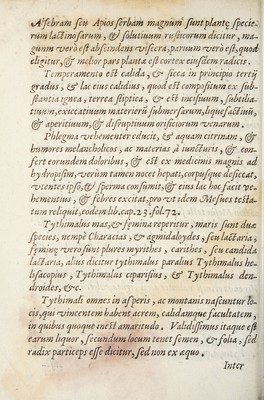 Alsebram seu Apios serbam magnum sunt plantę specie-
rum lactinosarum, & solutiuum rusticorum dicitur, ma-
gnum verò est abscindens viscera, paruum verò est, quod
eligitur, & melior pars plantæ est cortex eiusdem radicis.
Temperamento est calida, & sicca in principio tertij
gradus, & lac eius calidius, quod est compositum ex sub-
stantia ignea, terrea stiptica, & est incisiuum, subtilia-
tiuum, exiccatiuum materierũ submersarum, liquefactiuũ,
& aperitiuum, & disruptiuum orificiorum venarum.
Phlegma vehementer educit, & aquam citrinam, &
humores melancholicos, ac materias à iuncturis, & con-
fert eorundem doloribus, & est ex medicinis magnis ad
hydropisim, verùm tamen nocet hepati, corpusque desiccat,
ventes ipso, & sperma consumit, & eius lac hoc facit ve-
hementius, & febres excitat, pro vt idem Mesues testa-
tum reliquit, eodem lib. cap. 23. fol. 72.
Tythimalus mas, & femina reperitur, maris sunt duæ
species, nempè Characias, & agmidaboydes, seu lactaria;
feminę verò sunt plures myrithes, carithes, seu candida
lactaria, alius dicitur tythimalus paralius Tythimalus he-
lisacopius, Tythimalus ciparisius, & Tythimalus den-
droides, &c.
Tythimali omnes in asperis, ac montanis nascuntur lo-
cis, qui vincentem habent acrem, calidamque facultatem,
in quibus quoque inest amaritudo. Validissimus itaque est
earum liquor, secundum locum tenet semen, & folia, sed
radix particeps esse dicitur, sed non ex æquo.
Inter